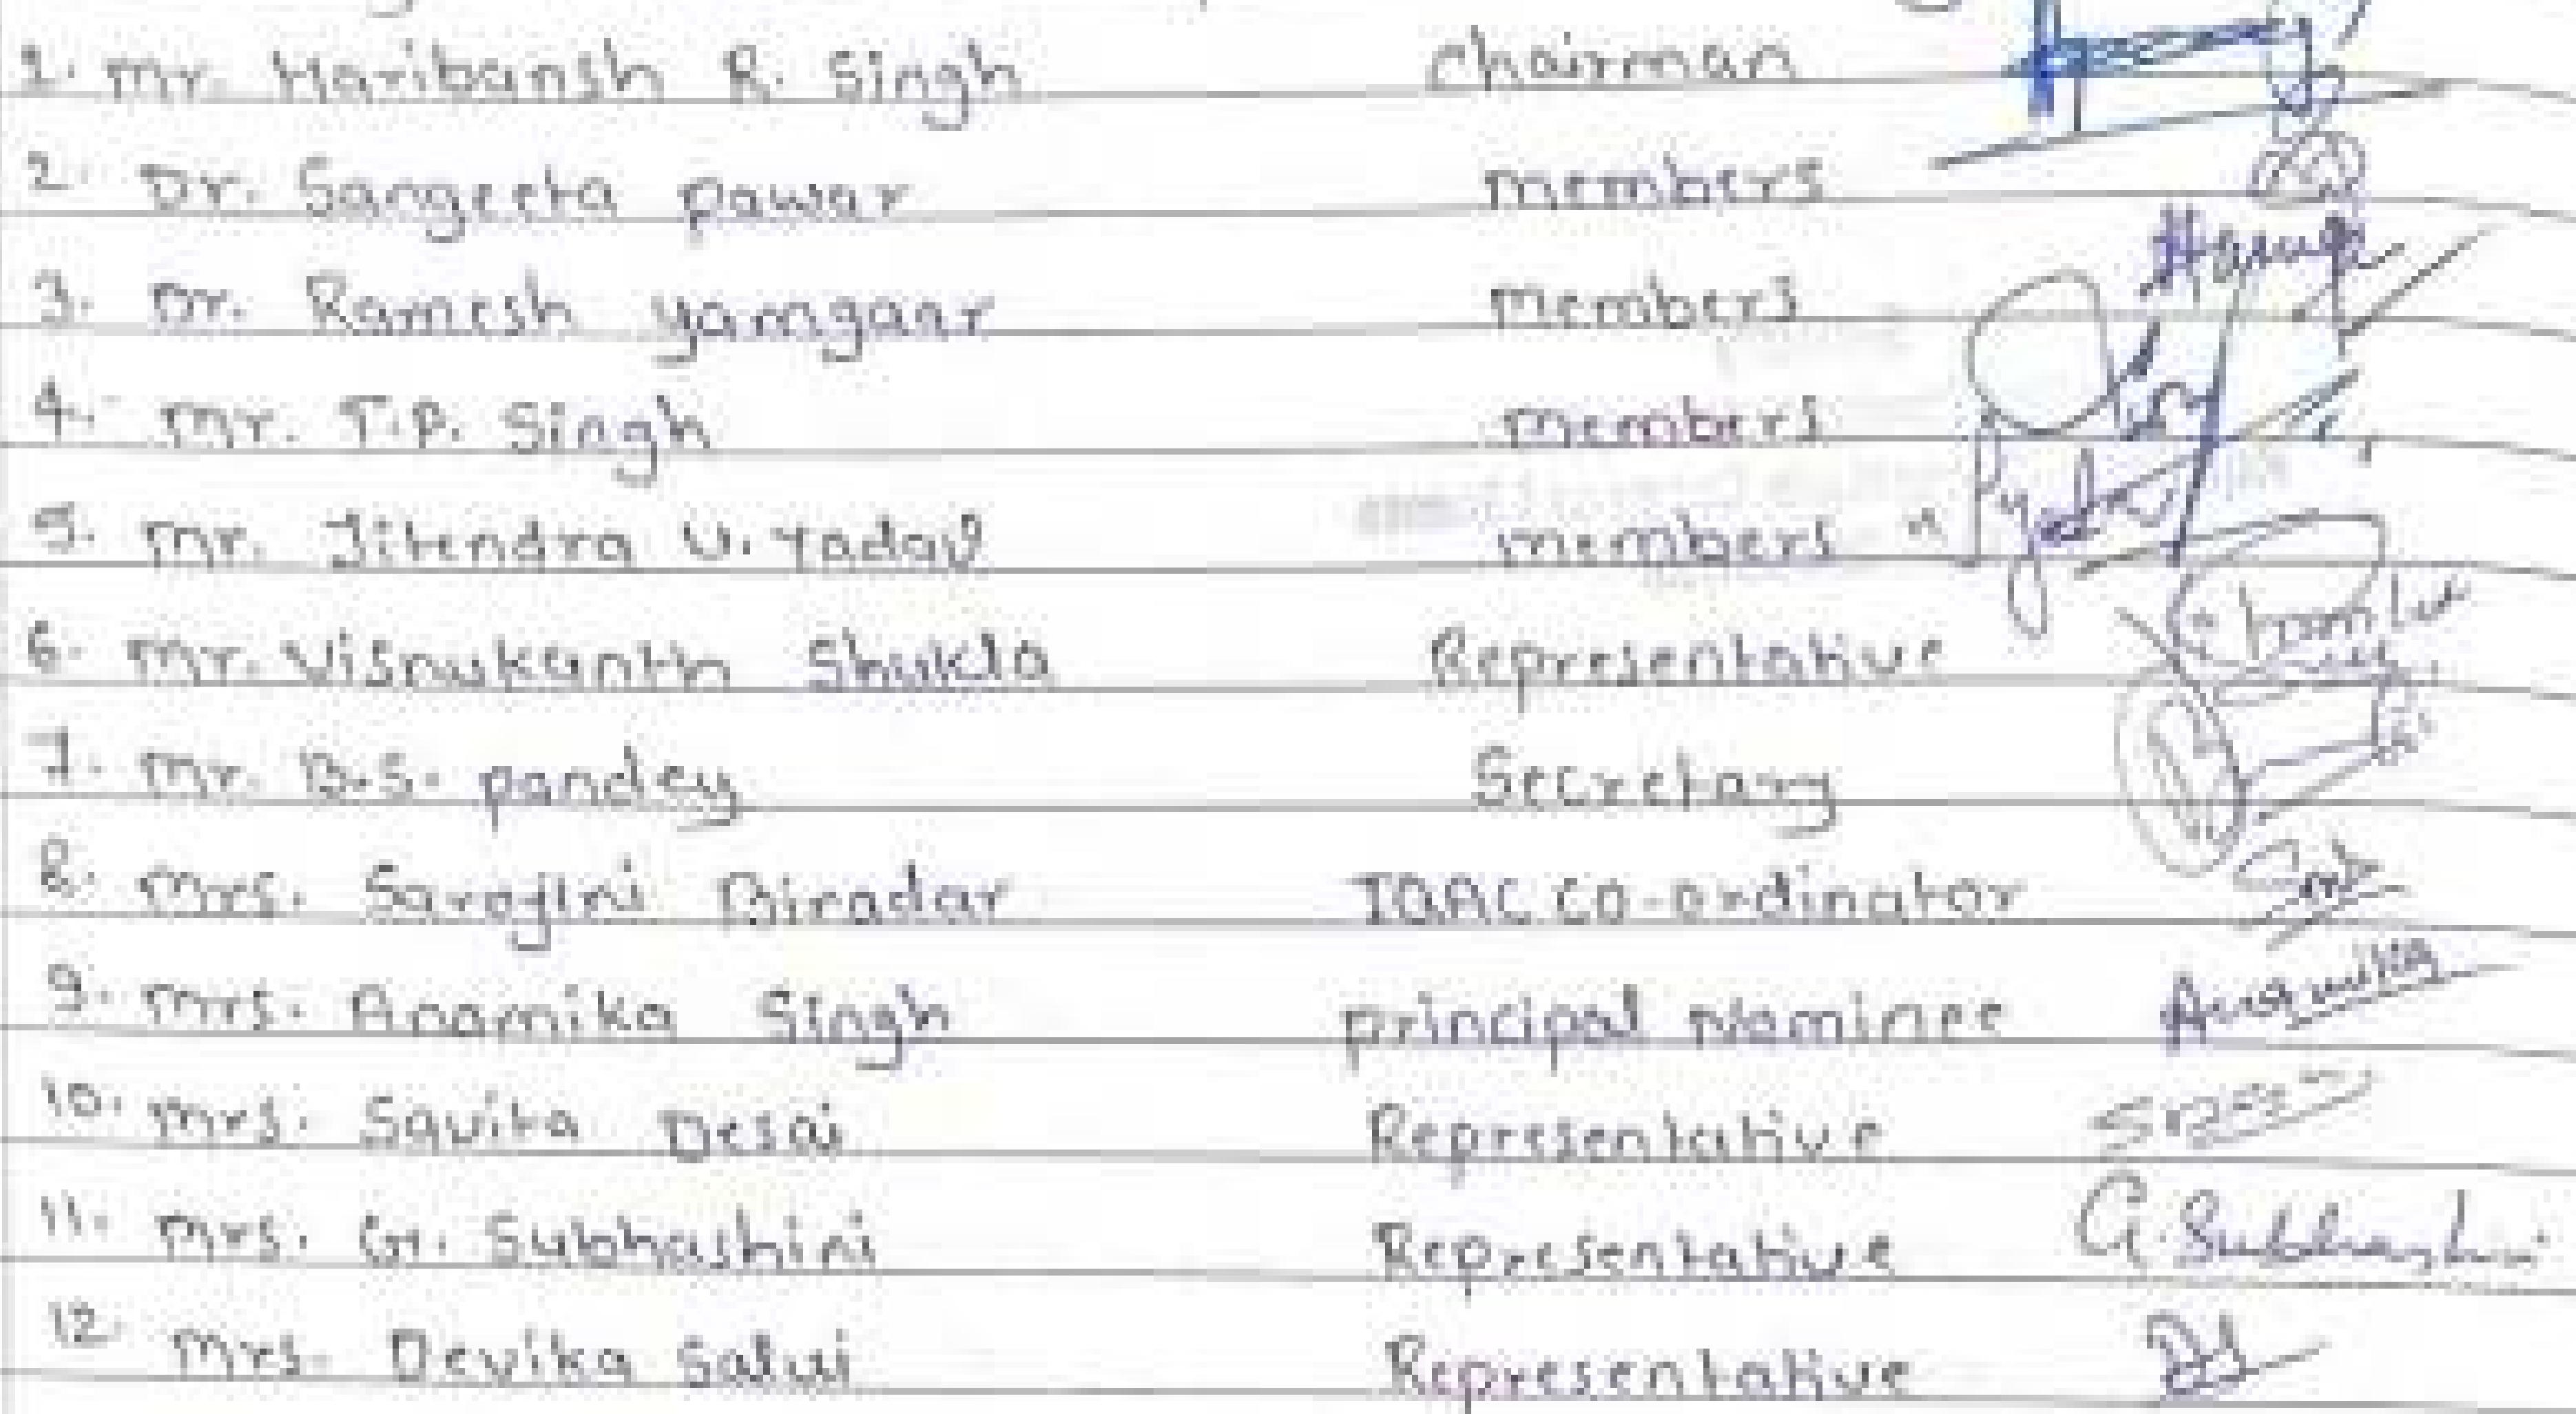 1. Mr. Haribansh R. Singh Chairman
2. Dr. Sangeeta Pawar members
3. Dr. Ramesh yamgaar members
4. Mr. T.P. Singh members
5. Mr. Jitendra U. Yadav members "
6. Mr. Visnukanth Shukla Representative
7. Mr. B.S. pandey Secretary
8. Mrs. Sarojini Biradar IQAC CO-ordinator
9. Mrs. Anamika Singh principal Nominee Anamika
10. Mrs. Savita Desai Representative
11. Mrs. G. Subhashini Representative G. Subhashini
12. Mrs. Devika Salvi Representative